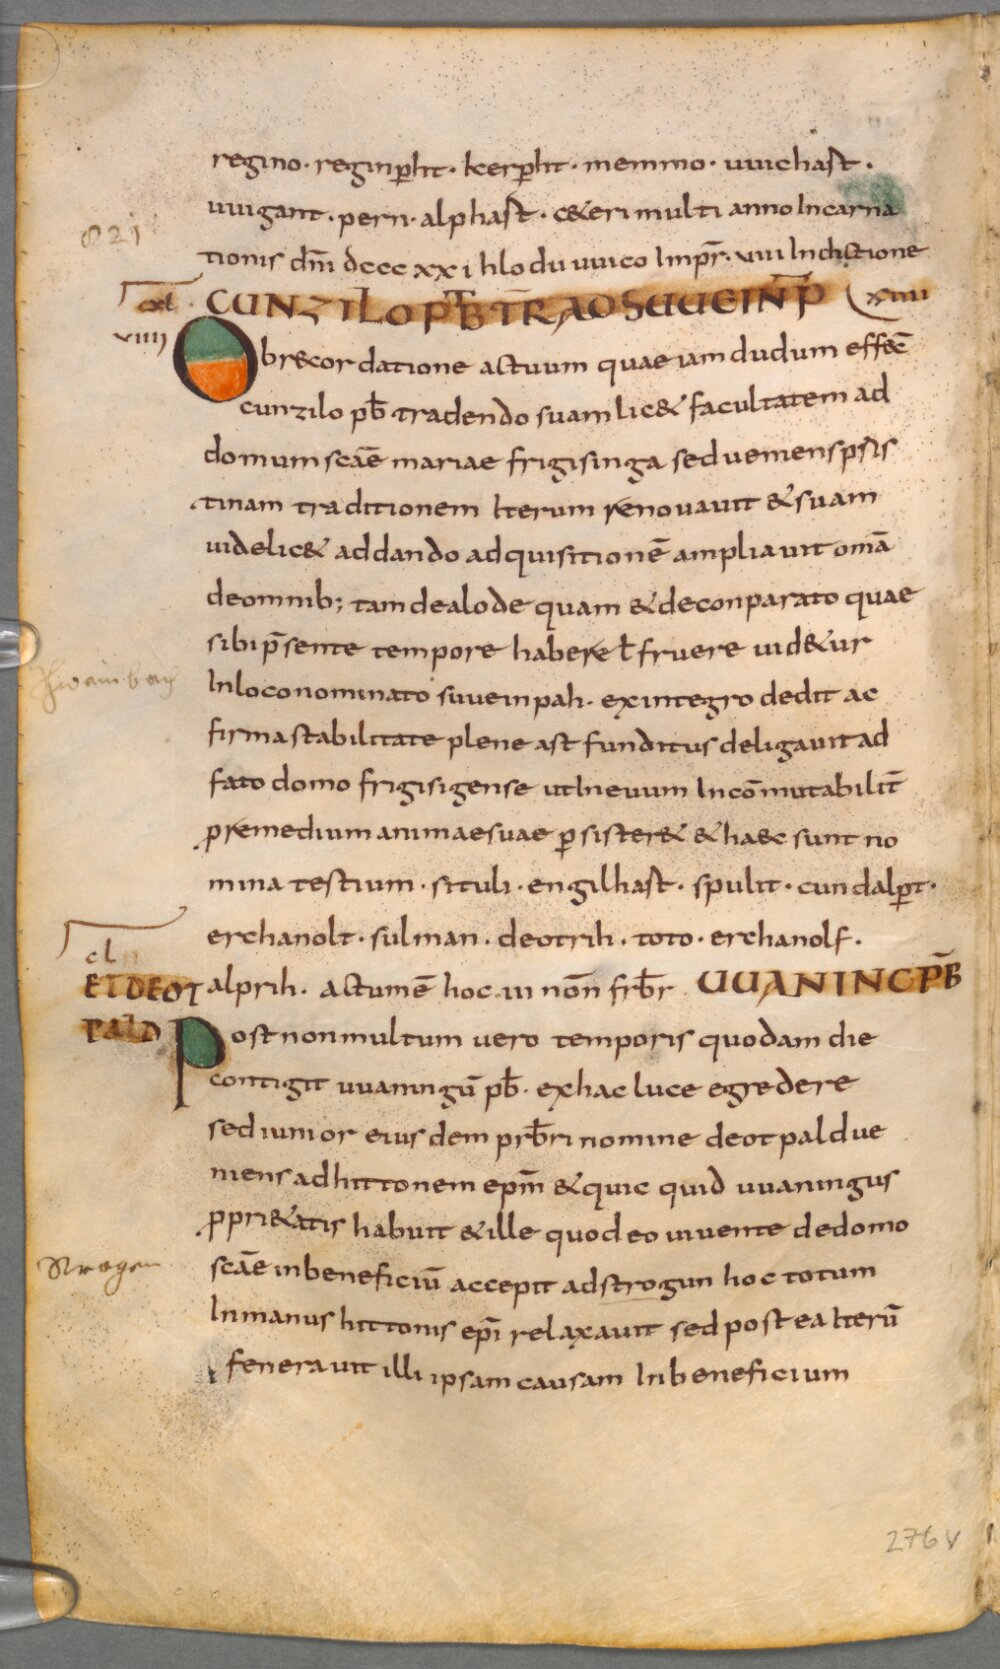 regino · reginp̄ht · kerp̄ht · memmo · uuichast ·
uuigant . pern · alphast · c&eri multi anno Incarna
821
tionis dn̄i dccc xx i hlodu uuico Imp̄r · viii Indictione
cxl viiii
CUNZILO PR̄B TR̄ AD SUUEINP̄ xiiii
Obr&cordatione actuum quae iam dudum effec̄
cunzilo pb̄ tradendo suam lic& facultatem ad
domum scāe mariae frigisinga sed ueniens psis
tinam traditionem Iterum renouauit & suam
uidelic& addando adquisitionē ampliauit omā
deomnib; tam dealode quam & deconparato quae
sibi p̄sente tempore habere ł fruere uid&ur
Inloco nominato suueinpah · exintegro dedit ac
firma stabilitate plene ast funditus deligauit ad
fato domo frigisigense utIneuum Incōmutabilit̄
premedium animae suae p̄ sister& & haec sunt no
mina testium · situli · engilhast · spulit · cundalp̄t ·
erchanolt · sulman · deotrih · toto · erchanolf ·
cl
alprih · actum ē hoc iii nōn frb̄r UUANINC PR̄B
ET DEOT
PALD
Post non multum uero temporis quodam die
contigit uuaningū pb̄ · exhac luce egredere
sed iunior eius dem prb̄ri nomine deotpald ue
niens ad hittonem epm̄ & quic quid uuaningus
ppri&atis habuit & ille quod eo uiuente dedomo
scāe inbeneficiū accepit ad strogun hoc totum
Inmanus hittonis ep̄i relaxauit sed postea Iterū
fenerauit illi ipsam causam Inbeneficium
276 v